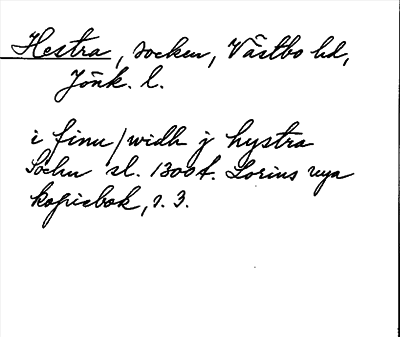 Hestra, socken, Västbo hd,
Jönk. l.
i finu/widh j hystra
Sochn sl. 1300t. Lorins nya
kopiebok, s. 3.